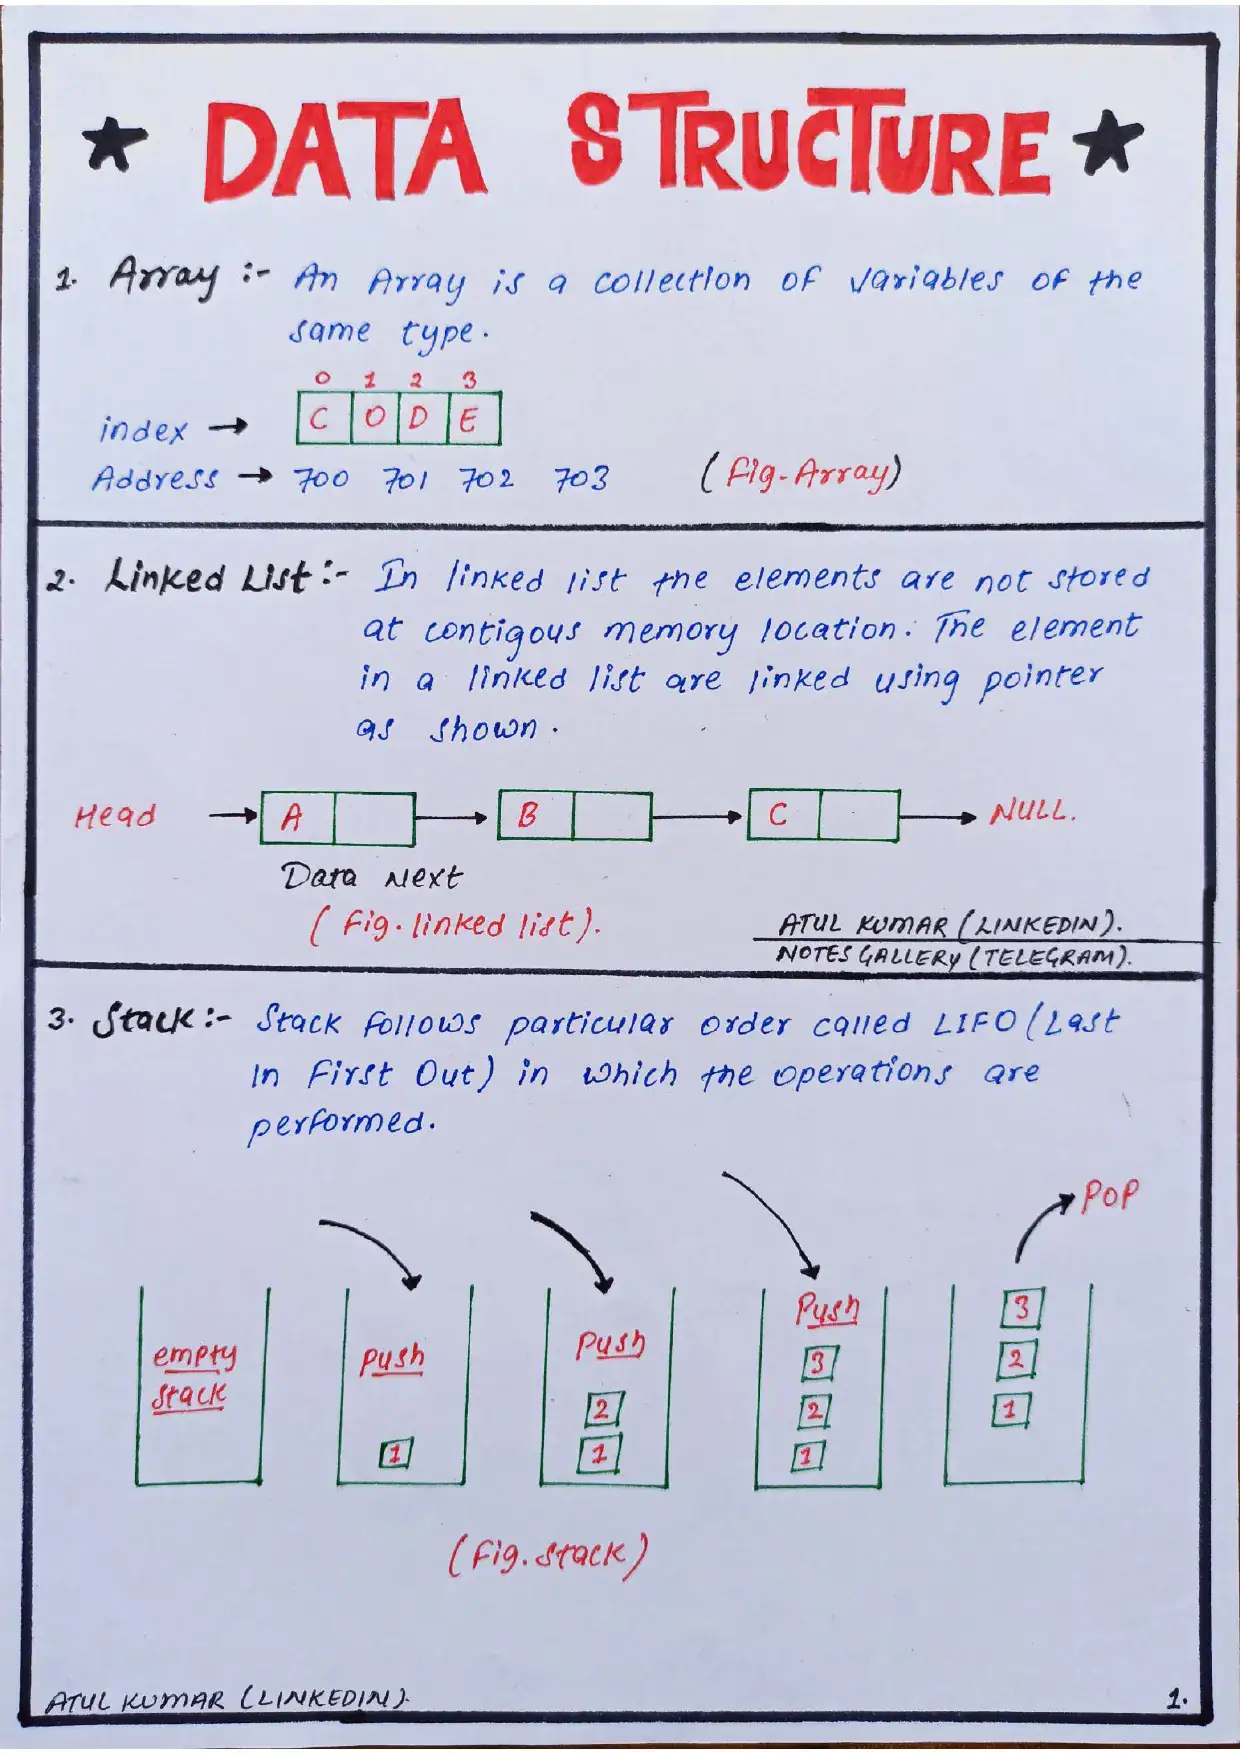 ★ DATA STRUCTURE ★
1. Array :- An Array is a collection of variables of the
same type.
0 1 2 3
index → C O D E
Address → 700 701 702 703 (Fig-Array)
2. Linked List :- In linked list the elements are not stored
at contigous memory location. The element
in a linked list are linked using pointer
as shown.
Head → A → B → C → NULL.
Data Next
(Fig. linked list).
ATUL KUMAR (LINKEDIN).
NOTES GALLERY (TELEGRAM).
3. Stack :- Stack follows particular order called LIFO (Last
In First Out) in which the operations are
performed.
POP
empty
stack
push
1
Push
2
1
Push
3
2
1
3
2
1
(Fig. stack)
ATUL KUMAR (LINKEDIN).
1.